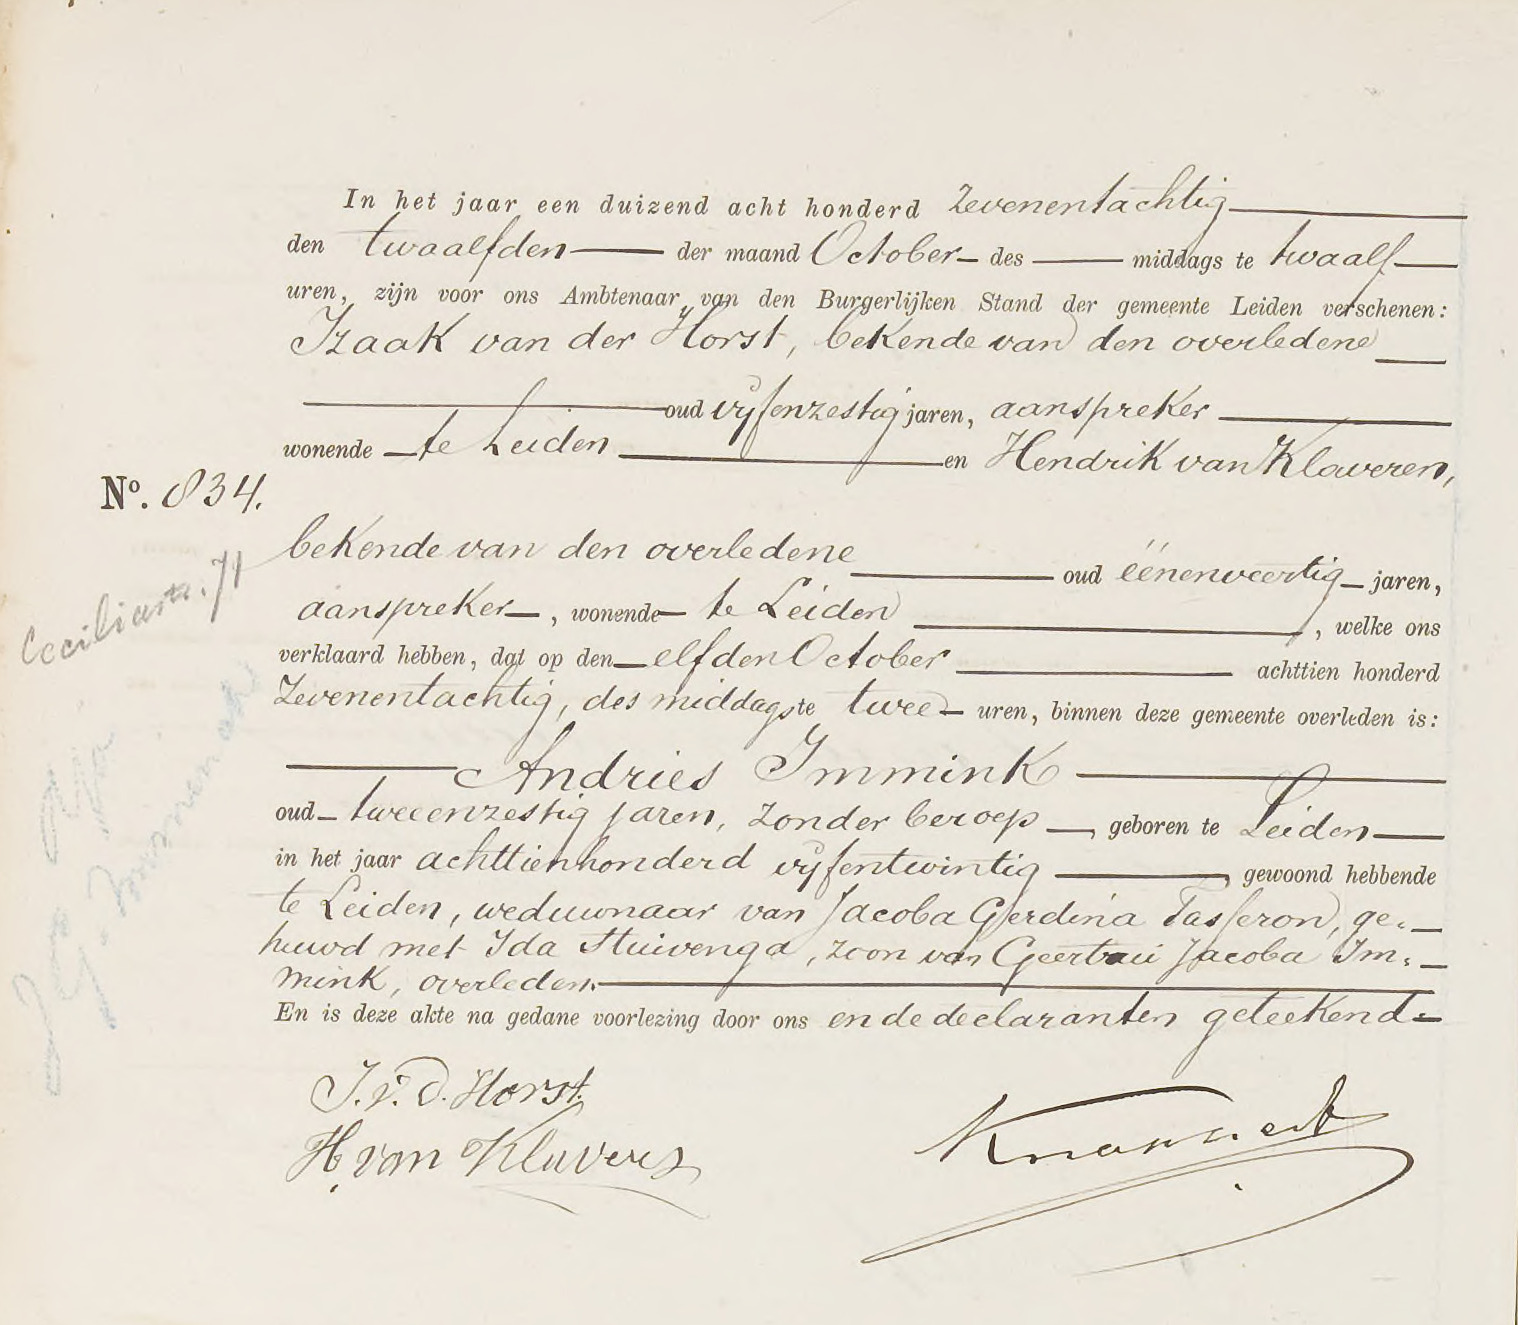 In het jaar een duizend acht honderd zevenentachtig
den twaalfden der maand October des middags te twaalf
uren, zijn voor ons Ambtenaar van den Burgerlijken Stand der gemeente Leiden verschenen:
Izaak van der Horst, bekende van den overledene
oud vijfenzestig jaren, aanspreker
wonende te Leiden en Hendrik van Klaveren,
No. 834.
bekende van den overledene oud éénenveertig jaren,
Ceciliastr. 71
aanspreker, wonende te Leiden, welke ons
verklaard hebben, dat op den elfden October achttien honderd
zevenentachtig, des middags te twee uren, binnen deze gemeente overleden is:
Andries Immink
oud tweeenzestig jaren, zonder beroep, geboren te Leiden
in het jaar achttienhonderd vijfentwintig, gewoond hebbende
te Leiden, weduwnaar van Jacoba Gerdina Tasseron, ge-
huwd met Ida Stuivenga, zoon van Geertrui Jacoba Im-
mink, overleden.
En is deze akte na gedane voorlezing door ons en de declaranten geteekend.
I. v. d. Horst.
H. van Klaveren